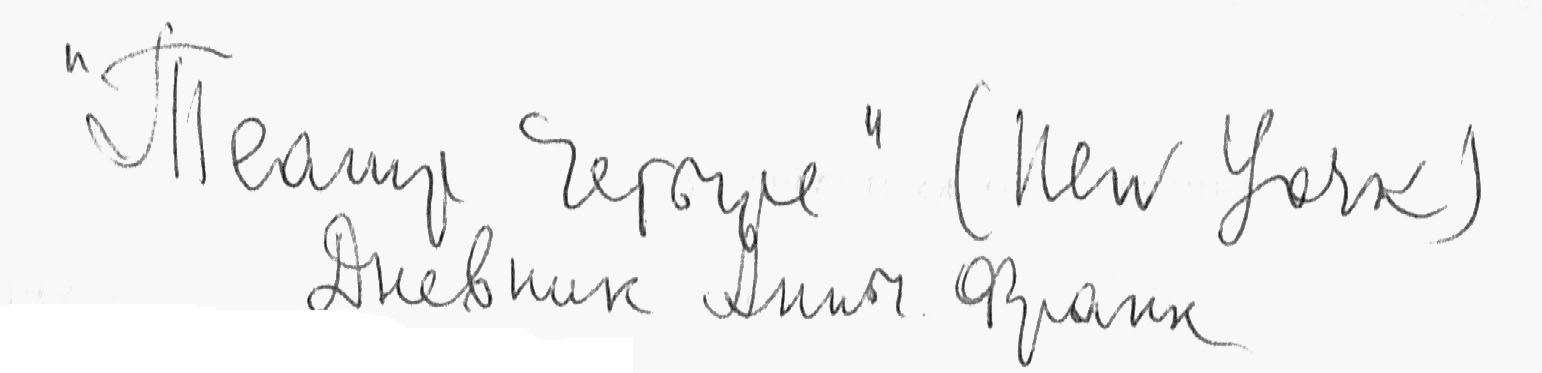 "Театр Четыре" (New York)
Дневник Анны Франк